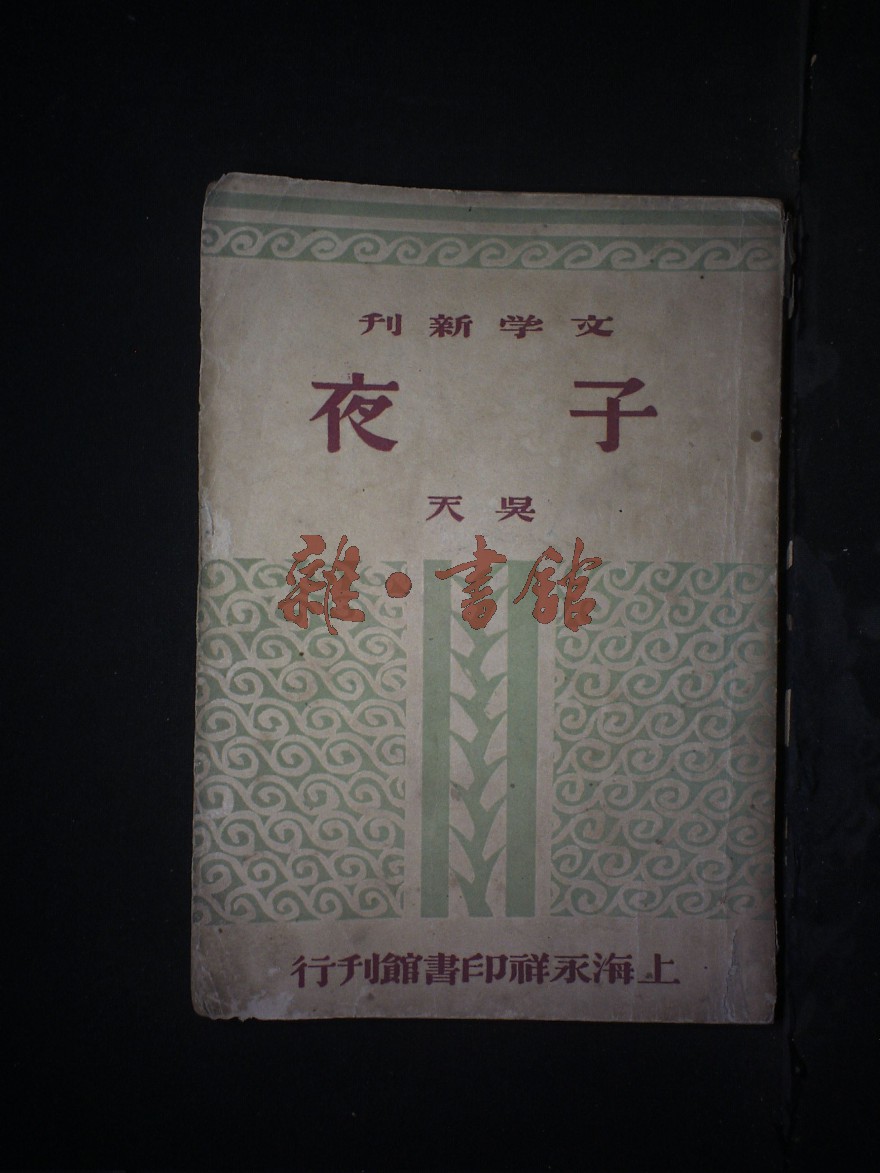 文学新刊
子夜
吳天
雜·書館
上海永祥印書館刊行